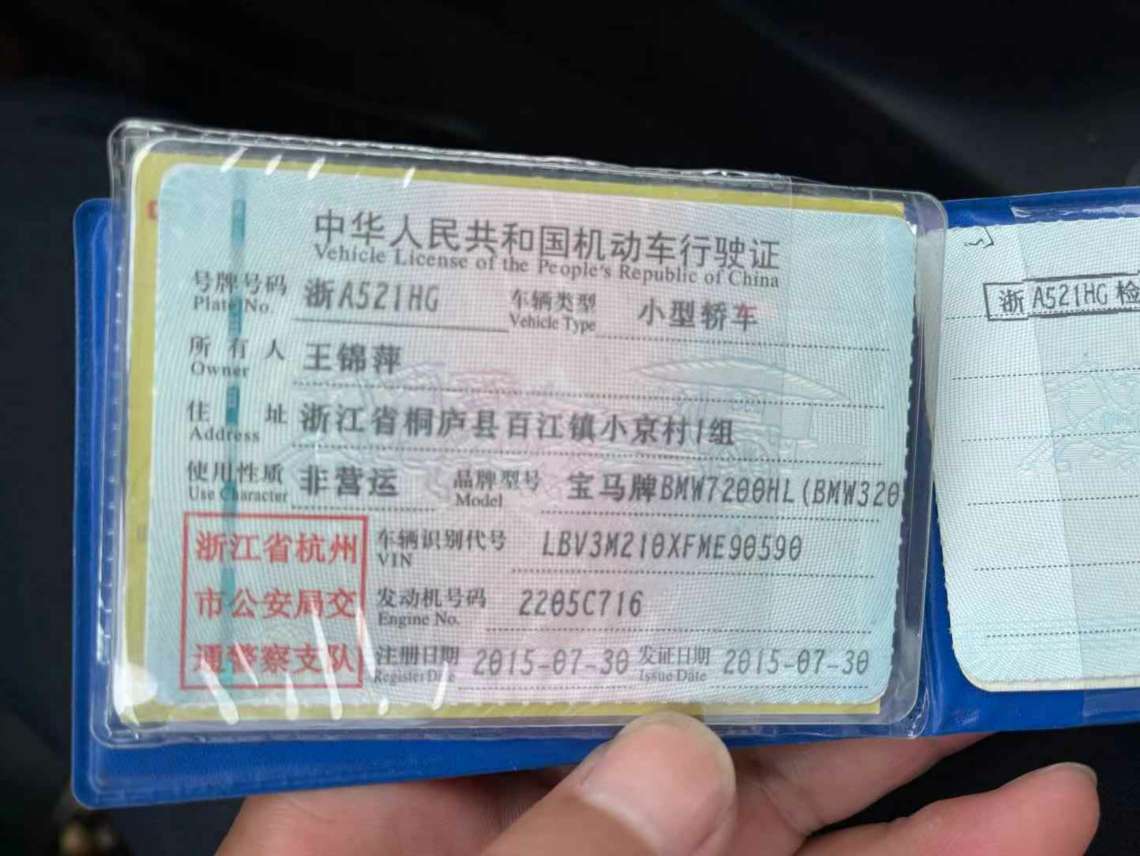 中华人民共和国机动车行驶证
Vehicle License of the People's Republic of China
号牌号码 浙A521HG 车辆类型 小型轿车
Plate No. Vehicle Type
所有人 王锦萍
Owner
住址 浙江省桐庐县百江镇小京村1组
Address
使用性质 非营运 品牌型号 宝马牌BMW7200HL(BMW320
Use Character Model
浙江省杭州
市公安局交
通警察支队
车辆识别代号 LBV3M210XFME90590
VIN
发动机号码 2205C716
Engine No.
注册日期 2015-07-30 发证日期 2015-07-30
Register Date Issue Date
浙A521HG检